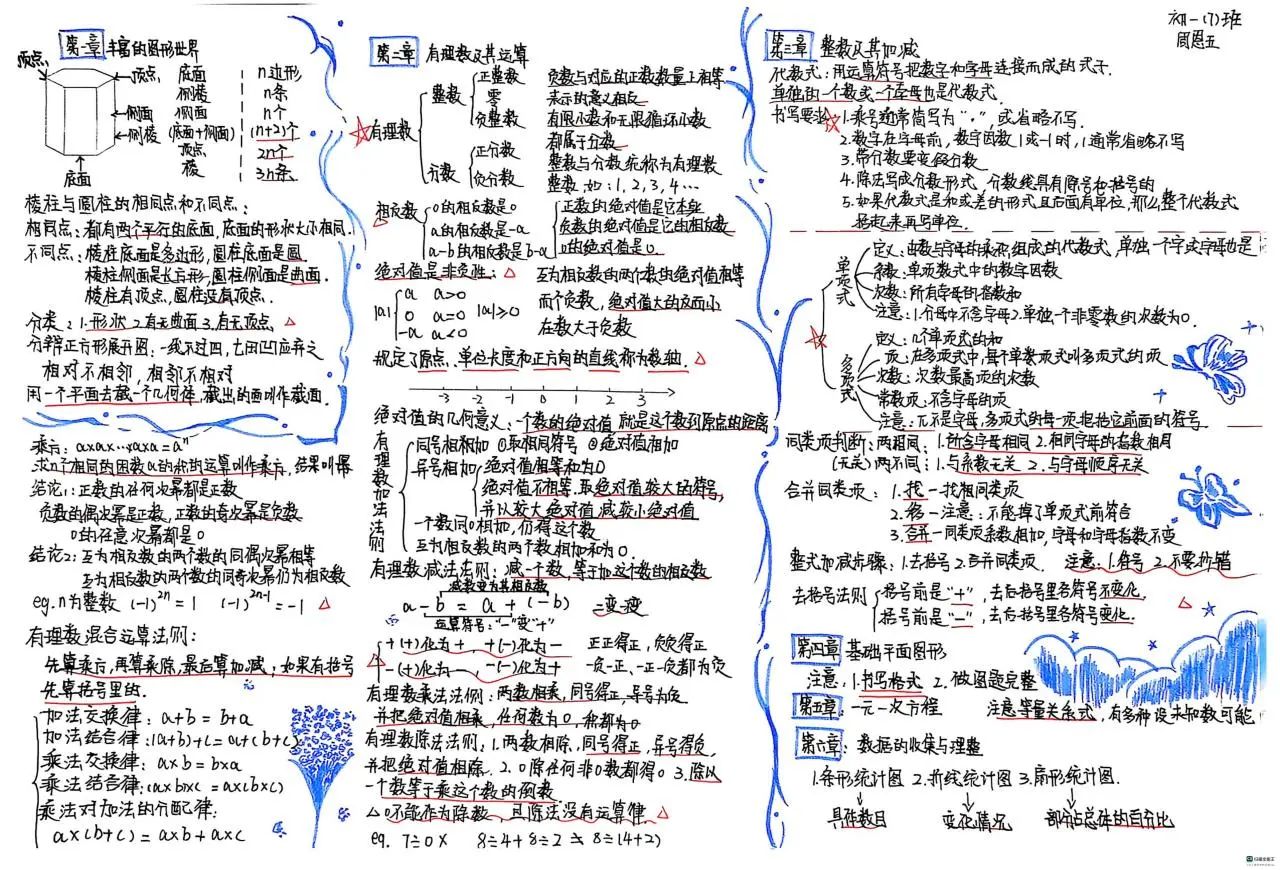 初一(7)班
周恩五
第一章 丰富的图形世界
顶点
顶点 底面 n边形
侧棱 n条
侧面 侧面 n个
侧棱 (底面+侧面) (n+2)个
顶点 2n个
棱 3n条
底面
棱柱与圆柱的相同点和不同点:
相同点:都有两个平行的底面,底面的形状大小相同.
不同点:棱柱底面是多边形,圆柱底面是圆.
棱柱侧面是长方形,圆柱侧面是曲面.
棱柱有顶点,圆柱没有顶点.
分类:1.形状 2.有无曲面 3.有无顶点 △
分辨正方形展开图:一线不过四,七田凹应弃之
相对不相邻,相邻不相对
用一个平面去截一个几何体,截出的面叫作截面.
乘方:a×a×…×a×a=aⁿ
求n个相同的因数a的积的运算叫作乘方,结果叫幂
结论1:正数的任何次幂都是正数
负数的偶次幂是正数,正数的奇次幂是负数
0的任意次幂都是0
结论2:互为相反数的两个数的同偶次幂相等
互为相反数的两个数的同奇次幂仍为相反数
eg.n为整数 (-1)²ⁿ=1 (-1)²ⁿ⁻¹=-1 △
有理数混合运算法则:
先算乘方,再算乘除,最后算加减;如果有括号
先算括号里的.
加法交换律:a+b=b+a
加法结合律:(a+b)+c=a+(b+c)
乘法交换律:a×b=b×a
乘法结合律:(a×b)×c=a×(b×c)
乘法对加法的分配律:
a×(b+c)=a×b+a×c
第二章 有理数及其运算
☆有理数
整数
正整数
零
负整数
分数
正分数
负分数
负数与对应的正数数量上相等
表示的意义相反
有限小数和无限循环小数
都属于分数
整数与分数统称为有理数
整数如:1,2,3,4…
相反数 △
0的相反数是0
a的相反数是-a
a-b的相反数是b-a
正数的绝对值是它本身
负数的绝对值是它的相反数
0的绝对值是0.
绝对值是非负性: △
|a|
a a>0
0 a=0
-a a<0
|a|≥0
互为相反数的两个数的绝对值相等
而个负数,绝对值大的反而小
在数大于负数
规定了原点、单位长度和正方向的直线称为数轴. △
-3 -2 -1 0 1 2 3
绝对值的几何意义:一个数的绝对值就是这个数到原点的距离
有理数加法法则
同号相相加 ①取相同符号 ②绝对值相加
异号相加
绝对值相等和为0
绝对值不相等.取绝对值较大的符号,
并以较大绝对值减较小绝对值
一个数同0相加,仍得这个数
互为相反数的两个数相加和为0.
有理数减法法则:减一个数,等于加这个数的相反数
减数变为其相反数
a-b=a+(-b) 二变
运算符号:"-"变"+"
△
+(+)化为+,+(-)化为- 正正得正,负负得正
-(+)化为-,-(-)化为+ 一负一正、一正一负都为负
有理数乘法法则:两数相乘,同号得正,异号为负
并把绝对值相乘,任何数为0,你都为0
有理数除法法则:1.两数相除,同号得正,异号得负,
并把绝对值相除. 2.0除任何非0数都得0 3.除以
一个数等于乘这个数的倒数
△0不能作为除数,且除法没有运算律 △
eg. 7÷0× 8÷4+8÷2 ≠ 8÷(4+2)
第三章 整数及其加减
代数式:用运算符号把数字和字母连接而成的式子.
单独的一个数或一个字母也是代数式.
书写要求 ☆
1.乘号通常简写为"·",或省略不写.
2.数字在字母前,数字因数1或-1时,1通常省略不写
3.带分数要变假分数
4.除法写成分数形式,分数线具有除号和括号的
5.如果代数式是和或差的形式且后面有单位,那么整个代数式
括起来再写单位.
☆
单项式
定义:由数与字母的乘积组成的代数式,单独一个字或字母也是
系数:单项数式中的数字因数
次数:所有字母的指数和
注意:1.分母中不含字母 2.单独一个非零数的次数为0.
多项式
定义:几个单项式的和
项:在多项式中,每个单项式叫多项式的项
次数:次数最高项的次数
常数项:不含字母的项
注意:π不是字母,多项式的每一项把括它前面的符号
同类项判断:两相同:1.所含字母相同 2.相同字母的指数相同
(无关)两不同:1.与系数无关 2.与字母顺序无关
合并同类项:1.找—找相同类项
2.移—注意:不能掉了单项式前符合
3.合并—同类项系数相加,字母和字母指数不变
整式加减步骤:1.去括号 2.合并同类项. 注意:1.符号 2.不要抄错
去括号法则
括号前是"+",去后括号里各符号不变化.
括号前是"-",去后括号里各符号变化.
△
第四章 基础平面图形
注意:1.书写格式 2.做图题完整
第五章:一元一次方程 注意等量关系式,有多种设未知数可能
第六章:数据的收集与理整
1.条形统计图 2.折线统计图 3.扇形统计图.
具体数目 变化情况 部分占总体的百分比
扫描全能王